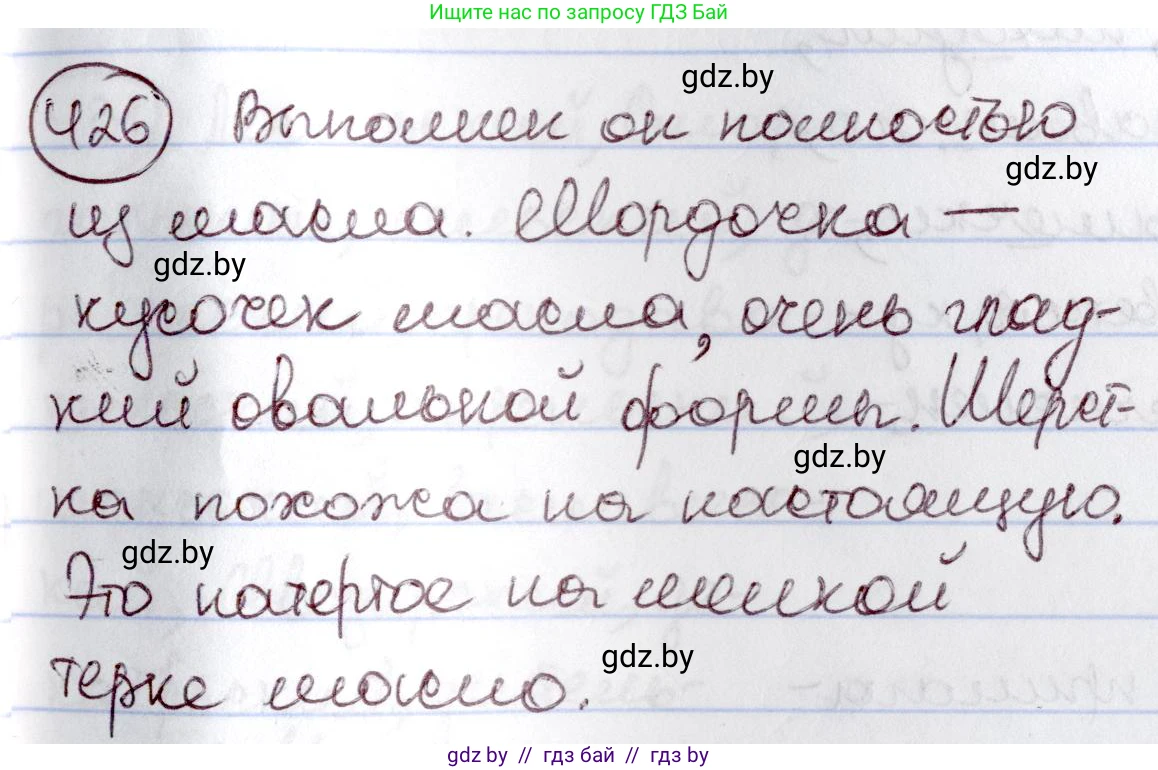 Ищите нас по запросу ГДЗ Бай
gdz.by
426 Выполнен он полностью
gdz.by
из масла. Мордочка —
gdz.by
кусочек масла, очень глад-
кий овальной формы. Шерст-
gdz.by
ка похожа на настоящую.
gdz.by
Это натертое на мелкой
gdz.by
терке масло.
gdz.by // гдз бай // гдз by